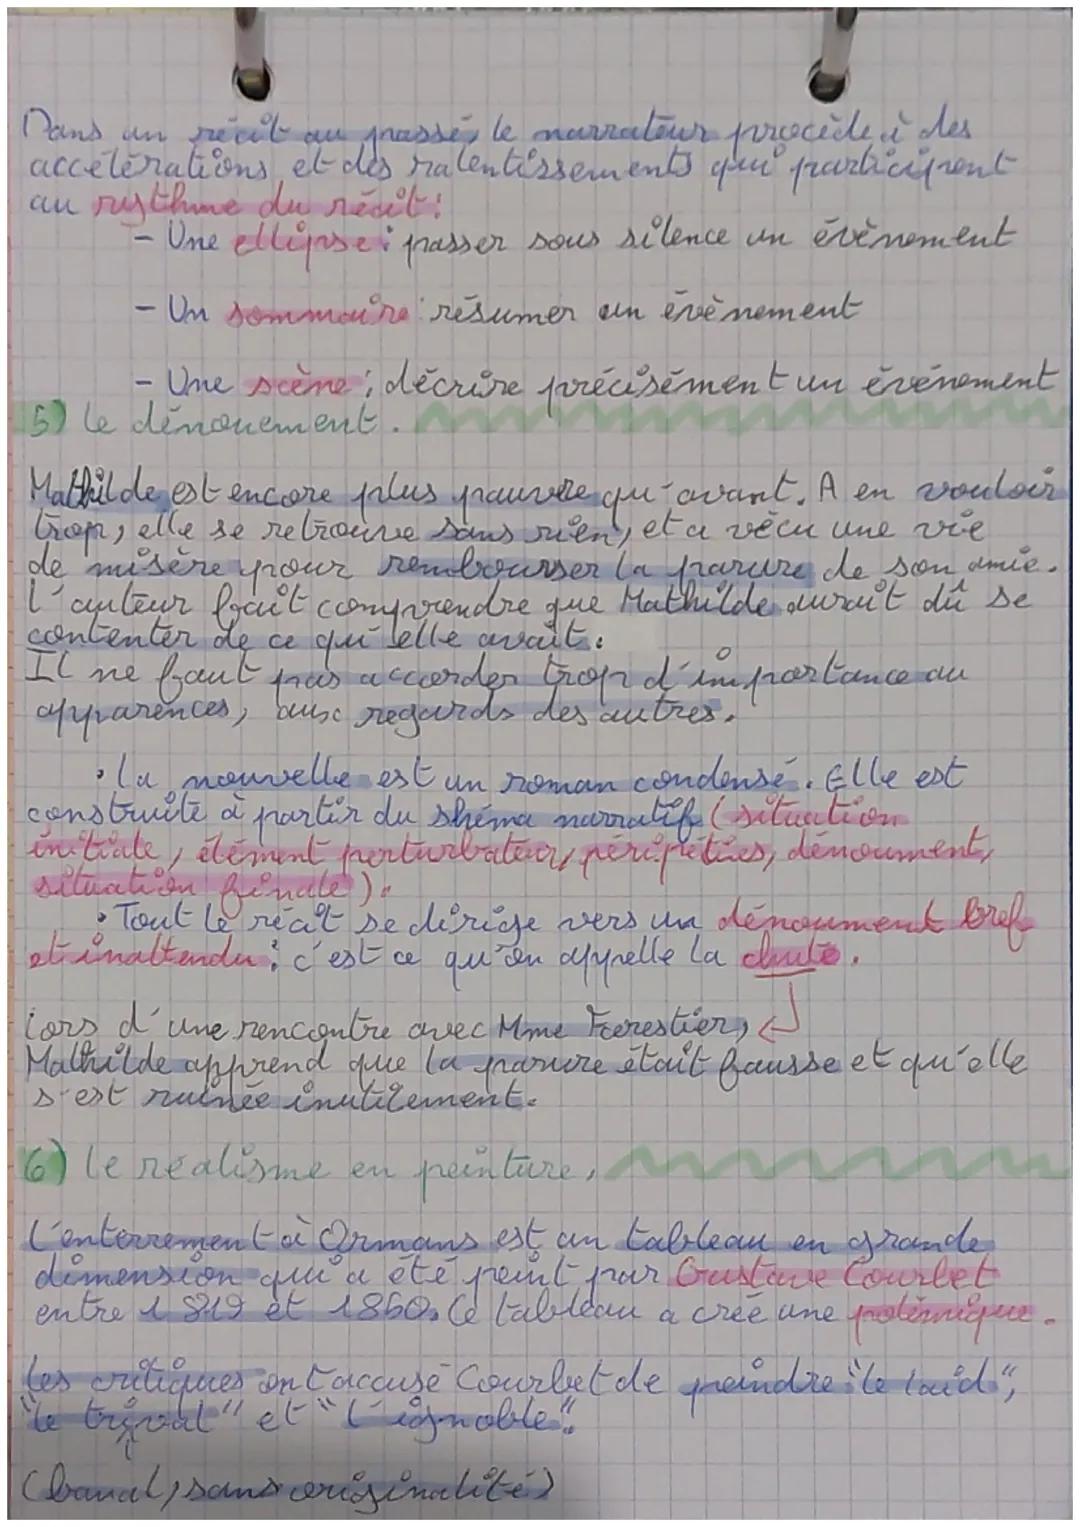 Dans un récit au passé, le narrateur procède à des
accélérations et des ralentissements qui participent
au rythme du récit:
- Une ellipse : passer sous silence un évènement
- Un sommaire : résumer un évènement
- Une scène ; décrire précisément un événement
5) le dénouement.
Mathilde est encore plus pauvre qu'avant. A en vouloir
trop, elle se retrouve sans rien, et a vécu une vie
de misère pour rembourser la parure de son amie.
L'auteur fait comprendre que Mathilde aurait dû se
contenter de ce qu'elle avait:
Il ne faut pas accorder trop d'importance au
apparences, aux regards des autres.
• la nouvelle est un roman condensé. Elle est
construite à partir du shéma narratif (situation
initiale, élément perturbateur, péripéties, dénoument,
situation finale).
• Tout le récit se dirige vers un dénoument bref
et inattendu : c'est ce qu'on appelle la chute.
Lors d'une rencontre avec Mme Forestier,
Mathilde apprend que la parure était fausse et qu'elle
s'est ruinée inutilement.
6) le réalisme en peinture.
L'enterrement à Ormans est un tableau en grande
dimension qui a été peint par Gustave Courbet
entre 1849 et 1850. Ce tableau a créé une polémique.
les critiques ont accusé Courbet de peindre "le laid",
"le trivial" et "l'ignoble".
(banal, sans originalité)